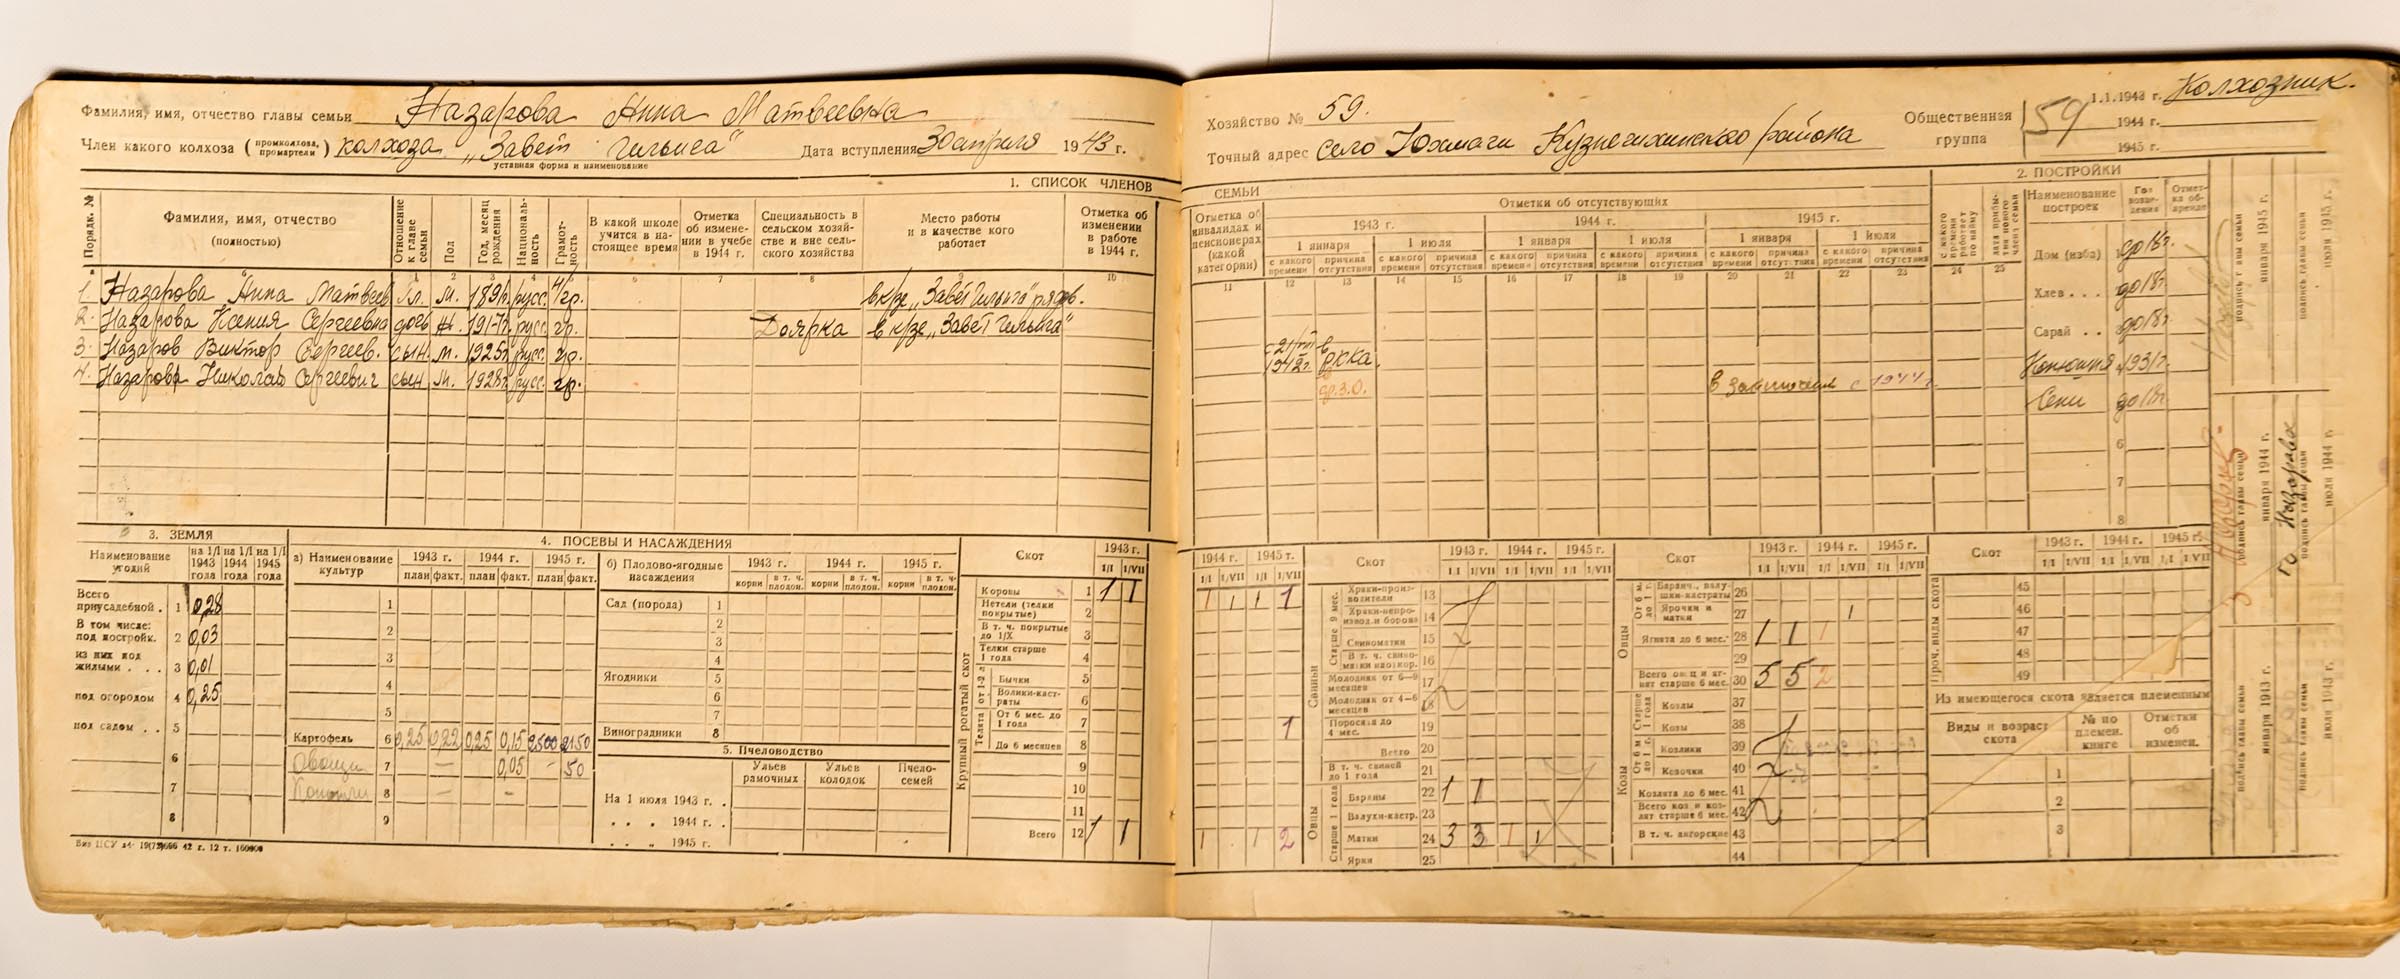 Фамилия, имя, отчество главы семьи Назарова Анна Матвеевна
Член какого колхоза (промколхоза, промартели) колхоза „Завет Ильича“ Дата вступления 30 апреля 1943 г.
уставная форма и наименование
1. СПИСОК ЧЛЕНОВ
Порядк. № Фамилия, имя, отчество (полностью) Отношение к главе семьи Пол Год, месяц рождения Националь-ность Грамот-ность В какой школе учится в на-стоящее время Отметка об измене-нии в учебе в 1944 г. Специальность в сельском хозяй-стве и вне сель-ского хозяйства Место работы и в качестве кого работает Отметка об изменении в работе в 1944 г.
1 2 3 4 6 7 8 9 10
1 Назарова Анна Матвеев гл. М. русс. гр. в к/зе „Завет Ильича“ рядов.
2. Назарова Ксения Сергеевна дочь 1917г. русс. гр. Доярка в к/зе „Завет Ильича“
3. Назаров Виктор Сергеев. сын. м. 1925г. русс. гр.
4. Назаров Николай Сергеевич сын м. 1928г. русс. гр.
3. ЗЕМЛЯ
Наименование угодий на 1/I 1943 года на 1/I 1944 года на 1/I 1945 года
Всего приусадебной . 1 0,28
В том числе: под постройк. 2 0,03
из них под жилыми . . . 3 0,01
под огородом 4 0,25
под садом . . 5
6
7
8
4. ПОСЕВЫ И НАСАЖДЕНИЯ
а) Наименование культур 1943 г. 1944 г. 1945 г.
план факт. план факт. план факт.
1
2
3
4
5
Картофель 6 0,25 0,22 0,25 0,15 2500 2150
Овощи 7 — 0,05 - 50
8 — -
9
б) Плодово-ягодные насаждения 1943 г. 1944 г. 1945 г.
корни в т. ч. плодон. корни в т. ч. плодон. корни в т. ч. плодон.
Сад (порода) 1
2
3
4
Ягодники 5
6
7
Виноградники 8
5. Пчеловодство
Ульев рамочных Ульев колодок Пчело-семей
На 1 июля 1943 г. .
. . „ 1944 г. .
. . „ 1945 г.
Крупный рогатый скот
Скот 1943 г.
1/I 1/VII
Коровы 1 1 1
Нетели (телки покрытые) 2
В т. ч. покрытые до 1/X 3
Телки старше 1 года 4
Телята от 1-2 л.
Бычки 5
Волики-каст-раты 6
От 6 мес. до 1 года 7
До 6 месяцев 8
9
10
11
Всего 12 1 1
Виз ЦСУ 42 г. 12 т.
Хозяйство № 59.
Точный адрес село Юхмачи Кузнечихинского района
Общественная группа 59
1.1.1943 г. Колхозник.
1944 г.
1945 г.
СЕМЬИ
Отметка об инвалидах и пенсионерах (какой категории) Отметки об отсутствующих
1943 г. 1944 г. 1945 г.
1 января 1 июля 1 января 1 июля 1 января 1 июля
с какого времени причина отсутствия с какого времени причина отсутствия с какого времени причина отсутствия с какого времени причина отсутствия с какого времени причина отсутствия с какого времени причина отсутствия
с какого времени работает по найму дата прибы-тия нового члена семьи
11 12 13 14 15 16 17 18 19 20 21 22 23 24 25
1942г. в РККА.
ф.З.О. в заключении с 1944г.
2. ПОСТРОЙКИ
Наименование построек Год возве-дения Отмет-ка об аренде
Дом (изба) до 18г.
Хлев . . . до 18г.
Сарай . . до 18г.
Конюшня 1931г.
Сени до 18г.
6
7
8
1944 г. 1945 г.
1/I 1/VII 1/I 1/VII
1 1 1 1
1
1 1 2
Свиньи
Скот 1943 г. 1944 г. 1945 г.
1/I 1/VII 1/I 1/VII 1/I 1/VII
Старше 9 мес.
Хряки-произ-водители 13
Хряки-непро-извод. и борова 14
Свиноматки 15
В т. ч. свино-матки 16
Молодняк от 6—9 месяцев 17
Молодняк от 4—6 месяцев 18
Поросята до 4 мес. 19
Всего 20
В т. ч. свиней до 1 года 21
Овцы
Старше 1 года
Бараны 22 1 1
Валухи-кастр. 23
Матки 24 3 3 1 1
Ярки 25
Скот 1943 г. 1944 г. 1945 г.
1/I 1/VII 1/I 1/VII 1/I 1/VII
Овцы
От 6 м. до 1 г.
Баранч., валу-шки-кастраты 26
Ярочки и матки 27 1
Ягнята до 6 мес. 28 1 1 1
29
Всего овец и яг-нят старше 6 мес. 30 5 5 2
Козы
Старше 1 года
Козлы 37
Козы 38
От 6 м. до 1 г.
Козлики 39
Козочки 40
Козлята до 6 мес. 41
Всего коз и коз-лят старше 6 мес. 42
В т. ч. ангорские 43
44
Проч. виды скота
Скот 1943 г. 1944 г. 1945 г.
1/I 1/VII 1/I 1/VII 1/I 1/VII
45
46
47
48
49
Из имеющегося скота является племенным
Виды и возраст скота № по племен. книге Отметки об изменен.
1
2
3
подпись главы семьи января 1945 г.
подпись главы семьи июля 1945 г.
подпись главы семьи января 1944 г.
Назарова
подпись главы семьи июля 1944 г.
подпись главы семьи января 1943 г.
подпись главы семьи июля 1943 г.